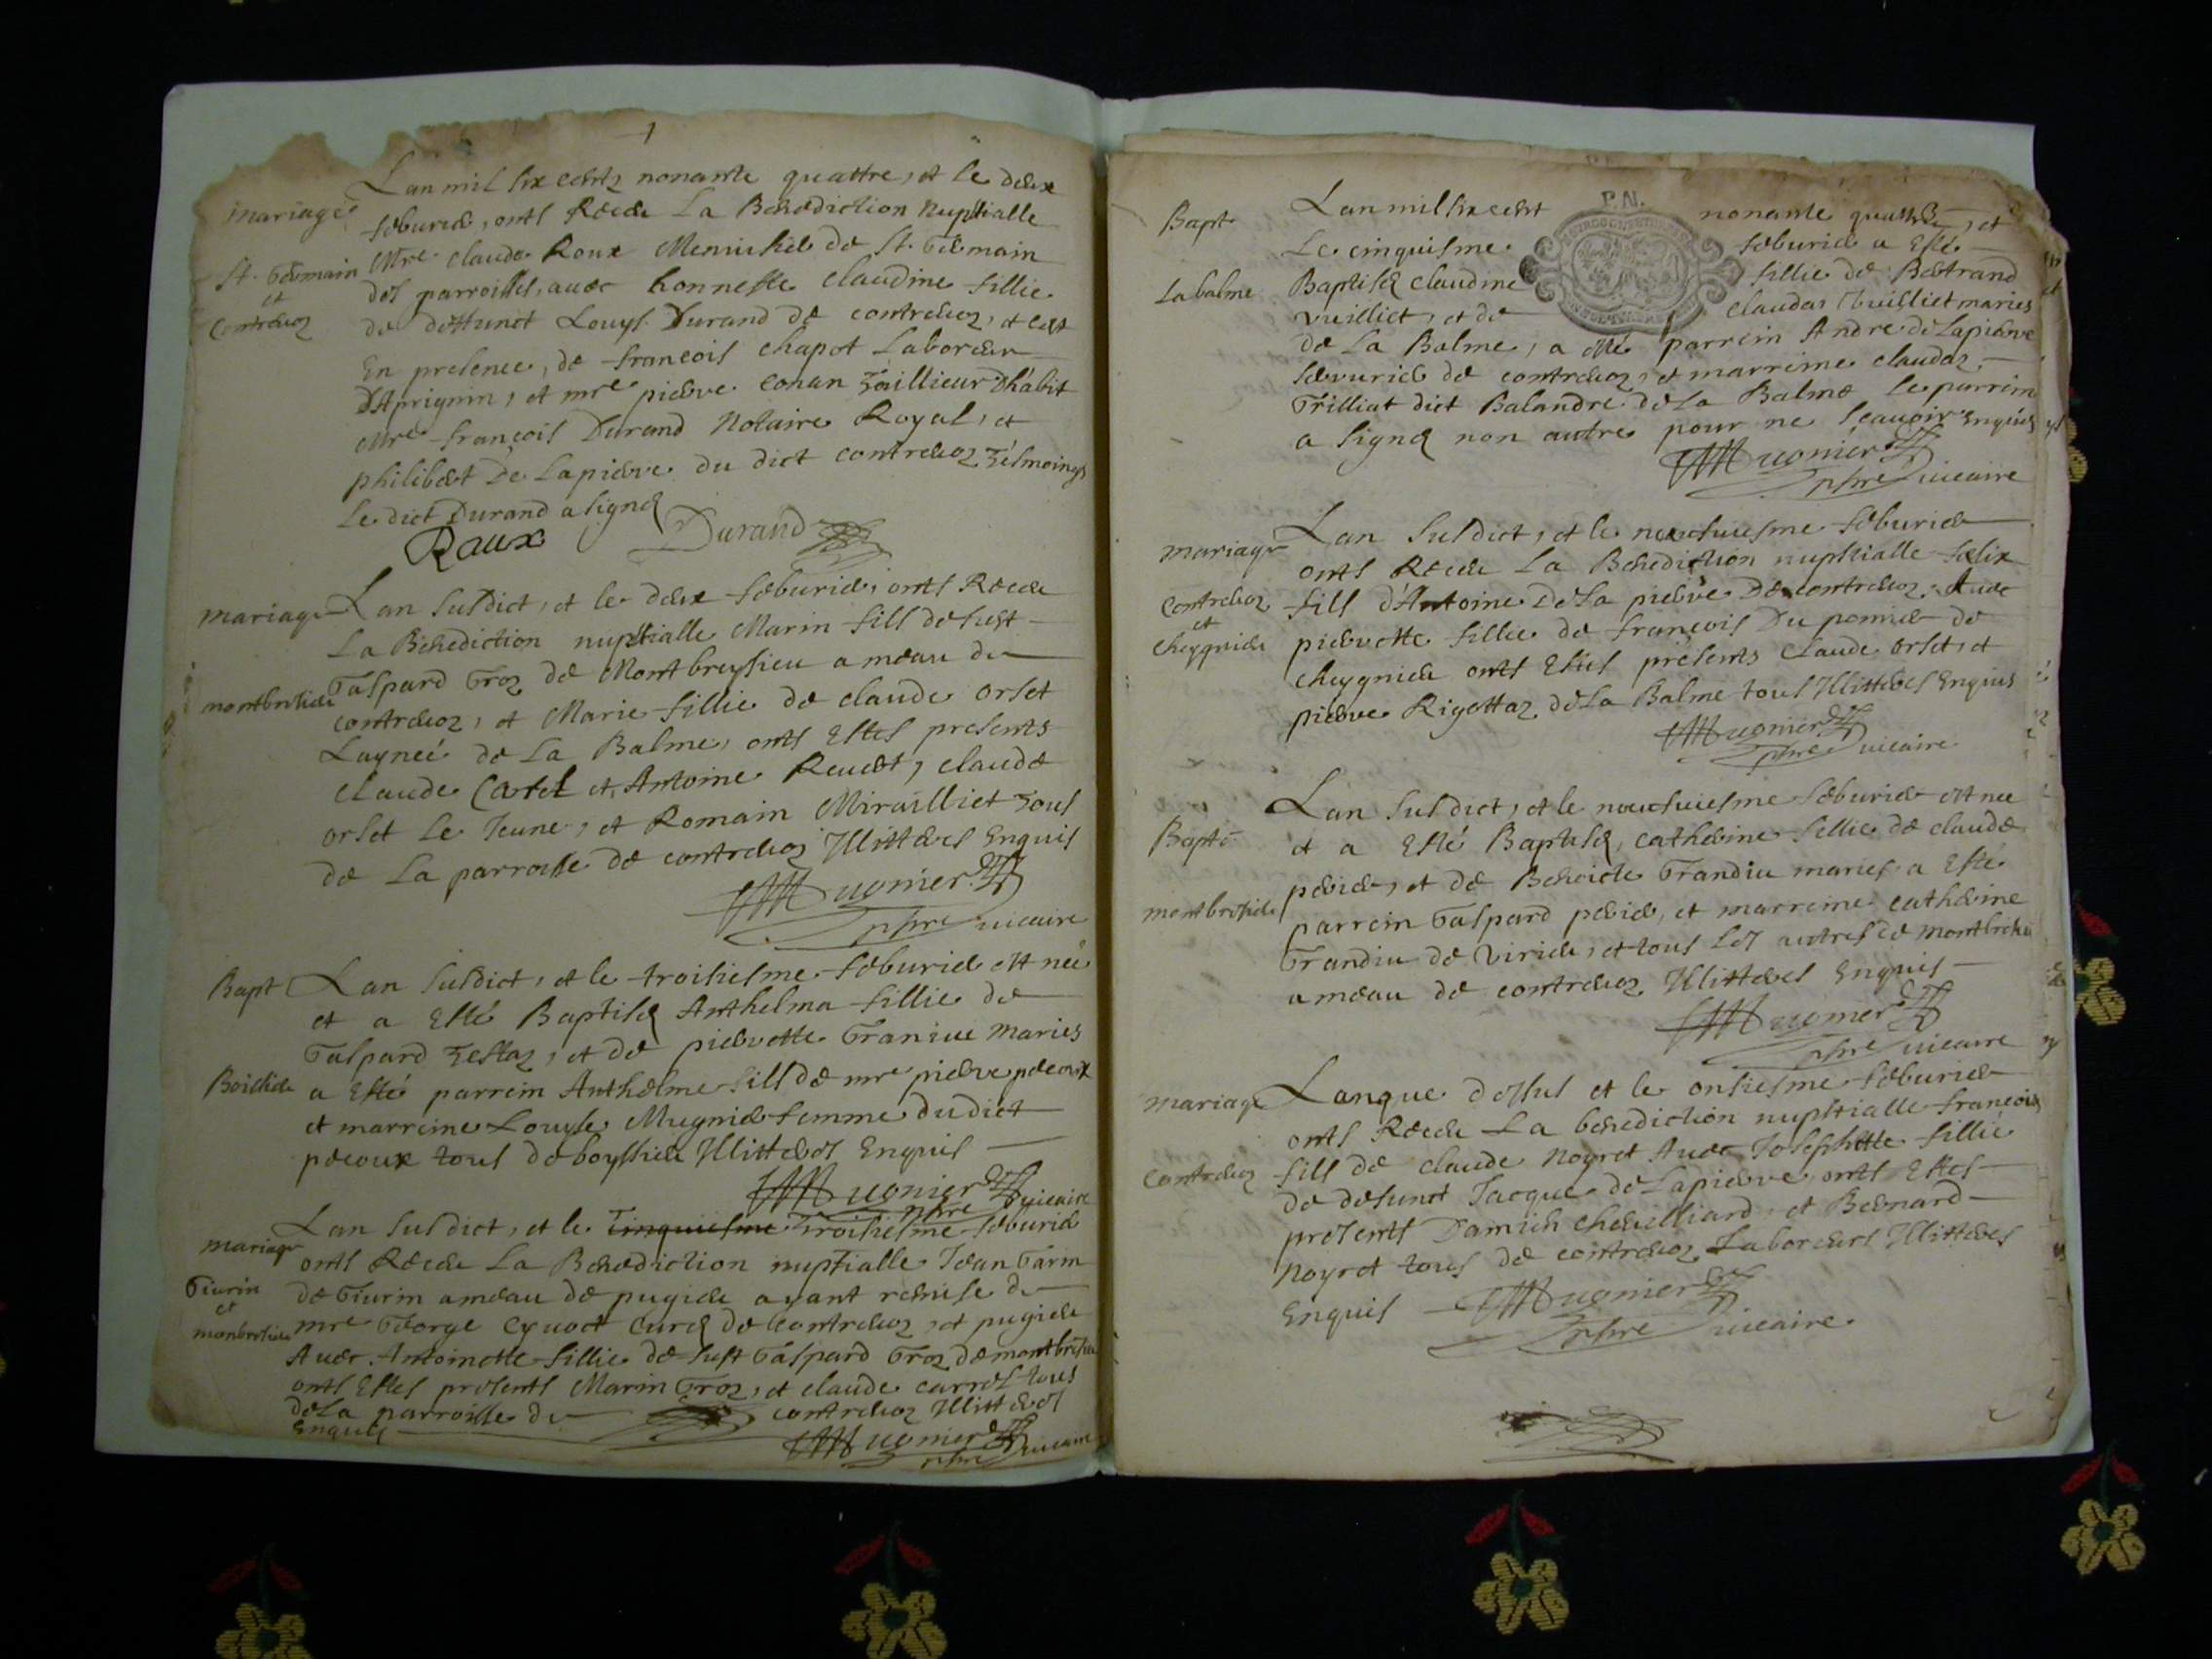 Lan mil six cents nonante quattre, et le deux
mariage
feburier, onts Receu La Benediction Nuptialle
Mre claude Roux Menusier de St. Germain
St. Germain
et
Contrevoz
des parroisses, avec honneste claudine fillie
de deffunct Louys Durand de contrevoz, et cest
En presence, de françois chapot Laboreur
D'Aprignin, et mre pierre conan Taillieur D'habit
Mre françois Durand Notaire Royal, et
philibert De Lapierre du dict contrevoz Tesmoings
Le dict Durand a signé
Roux Durand
mariage
Lan susdict, et le deux feburier, onts Receu
La Benediction nuptialle Marin fils de fust
montbresieu
Gaspard Groz de Montbreysieu ameau de
contrevoz, et Marie fillie de claude orset
Layneé de La Balme, onts Estes presents
claude Carrel et Antoine Reuet, claude
orset Le Jeune, et Romain Miraillet Tous
de La parroisse de contrevoz Illitteres Enquis
Mugnier
pbre vicaire
Bapt
Lan susdict, et le troisiesme feburier est neé
et a Esté Baptiseé Anthelma fillie de
Gaspard Testaz, et de pierrette Graniue Maries
Boissieu
a Esté parrein Anthelme fils de mre pierre pecoux
et marreine Louyse Mugnier femme dudict
pecoux tous de boyssieu Illitteres Enquis
Mugnier pbre vicaire
mariage
Lan susdict, et le cinquiesme Troisiesme feburier
onts Receu La Benediction nuptialle Jean Garin
Giurin
et
monbresieu
de Giurin ameau de pugieu ayant remise de
mre George Cyuoct Curé de contrevoz, et pugieu
Avec Antoinette fillie de fust Gaspard Groz de montbresieu
onts Estes presents Marin Groz, et claude carrel tous
de La parroisse de contrevoz Illitteres
Enquis
Mugnier pbre vicaire
P.N.
Bapt
Lan mil six cent nonante quattre, et
Le cinquisme feburier a Esté
La balme
Baptiseé claudine fillie de Bertrand
vuilliet, et de claudaz Thuilliet maries
de La Balme, a esté parrein Andre de Lapierre
serrurier de contrevoz, et marreine claudaz
Trilliat dict Balandre de La Balme le parrein
a signé non autre pour ne scauoir Enquis
Mugnier
pbre vicaire
mariage
Lan susdict, et le neufuiesme feburier
onts Receu La Benediction nuptialle felix
Contrevoz
et
Cheygnieu
fils d'Antoine De La pierre De contrevoz Avec
pierrette fillie de françois Du pomier de
cheygnieu onts Estes presents claude orset, et
pierre Rigottaz de La Balme tous Illitteres Enquis
Mugnier
pbre vicaire
Lan susdict, et le neufuiesme feburier est nee
Bapt
et a Esté Baptiseé, catherine fillie de claude
perier, et de Benoicte Grandin maries a Esté
montbresieu
parrein Gaspard perier, et marreine catherine
Grandin de Virieu, et tous Les autres de montbresieu
ameau de contrevoz Illitteres Enquis
Mugnier
pbre vicaire
mariage
Lanque dessus et le onsiesme feburier
onts Receu La benediction nuptialle françois
Contrevoz
fils de claude Noyret Avec Josephtte fillie
de defunct Jacque de Lapierre, onts Estes
presents Damien cheuilliard, et Bernard
Noyret tous de contrevoz Laboreurs Illitteres
Enquis
Mugnier
pbre vicaire